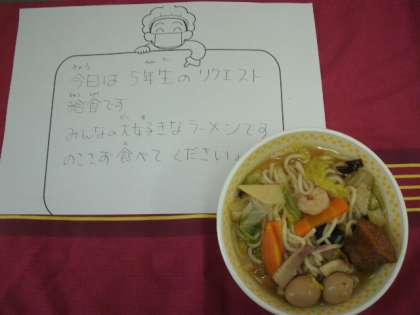 今日は 5年生の リクエスト
給食です
みんなの大好きなラーメンです
のこさず 食べて ください。